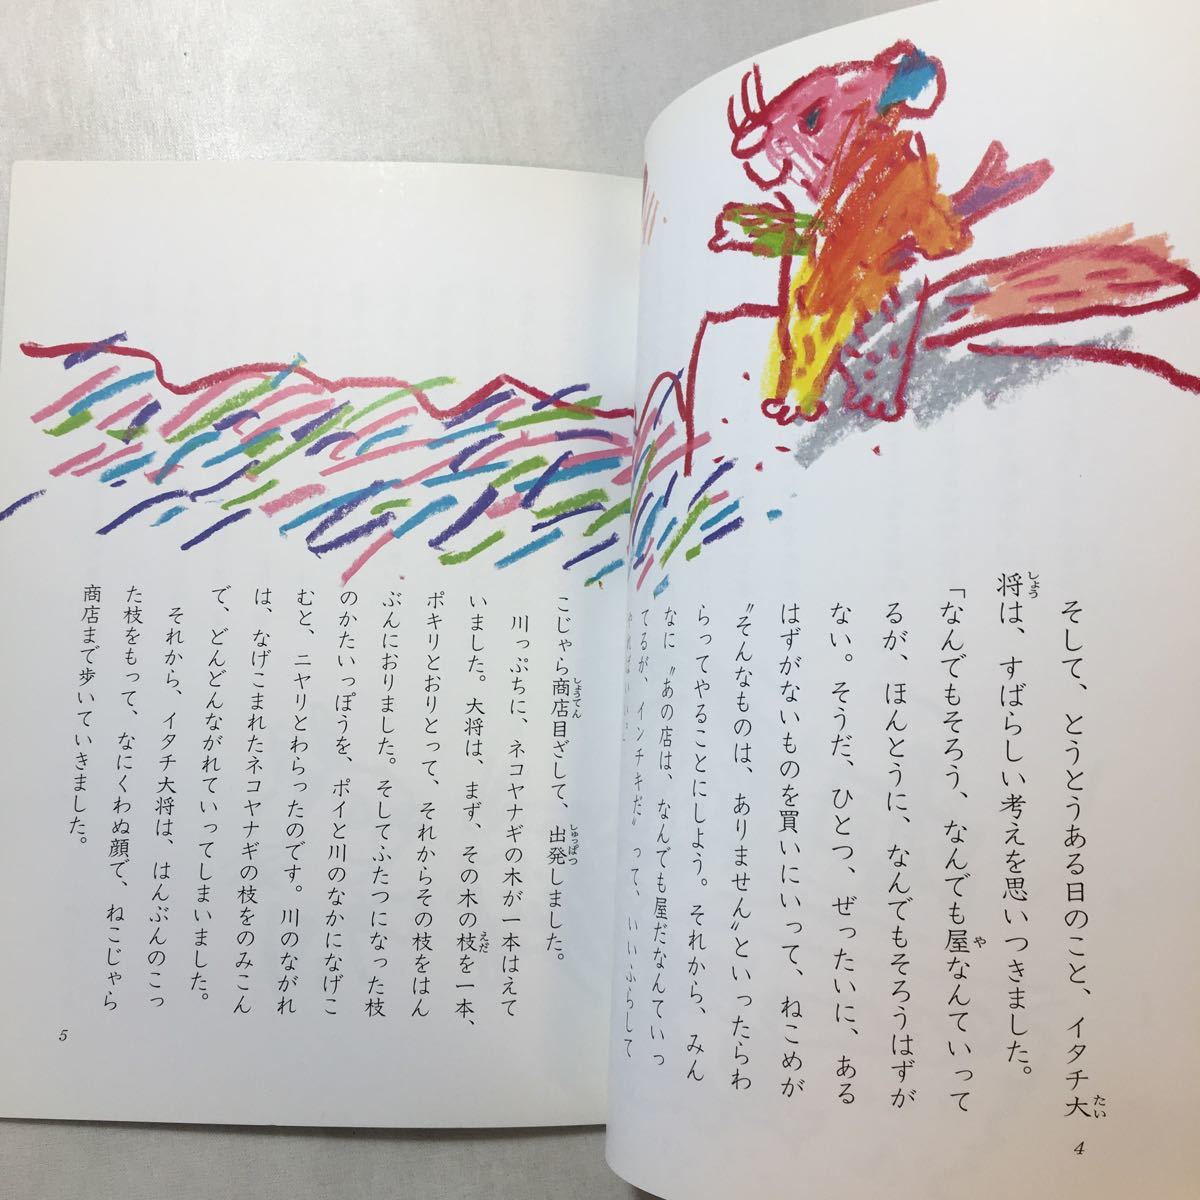 そして、とうとうある日のこと、イタチ大
将は、すばらしい考えを思いつきました。
「なんでもそろう、なんでも屋なんていって
るが、ほんとうに、なんでもそろうはずが
ない。そうだ、ひとつ、ぜったいに、ある
はずがないものを買いにいって、ねこめが
〝そんなものは、ありません〟といったらわ
らってやることにしよう。それから、みん
なに〝あの店は、なんでも屋だなんていっ
てるが、インチキだ〟って、いいふらして
やればいい」
4
こじゃら商店目ざして、出発しました。
川っぷちに、ネコヤナギの木が一本はえて
いました。大将は、まず、その木の枝を一本、
ポキリとおりとって、それからその枝をはん
ぶんにおりました。そしてふたつになった枝
のかたいっぽうを、ポイと川のなかになげこ
むと、ニヤリとわらったのです。川のながれ
は、なげこまれたネコヤナギの枝をのみこん
で、どんどんながれていってしまいました。
それから、イタチ大将は、はんぶんのこっ
た枝をもって、なにくわぬ顔で、ねこじゃら
商店まで歩いていきました。
5